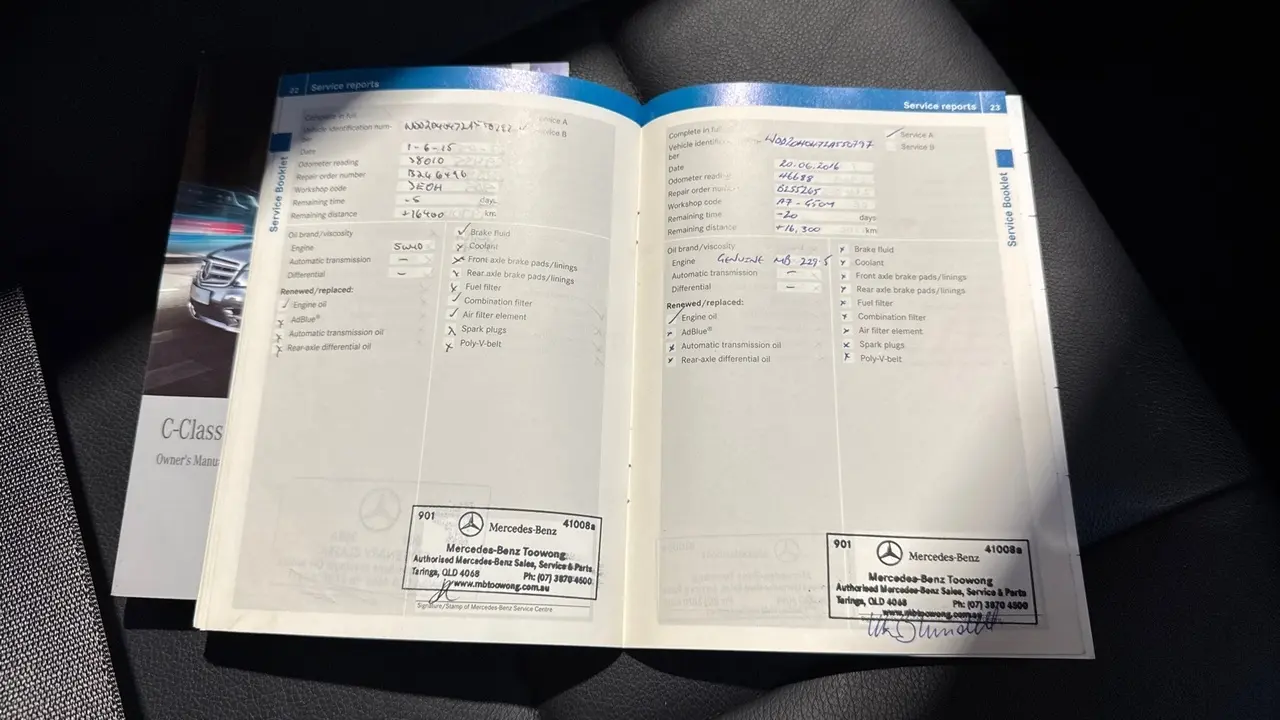 22 Service reports
Service Booklet
Complete in full
Vehicle identification num-
ber
Date 1-6-15
Odometer reading 38010
Repair order number B246496
Workshop code
Remaining time -5 days
Remaining distance +16400 km
Service A
Service B
Oil brand/viscosity
Engine 5W40
Automatic transmission –
Differential –
Renewed/replaced:
✓ Engine oil
x AdBlue®
x Automatic transmission oil
x Rear-axle differential oil
✓ Brake fluid
x Coolant
x Front axle brake pads/linings
x Rear axle brake pads/linings
x Fuel filter
✓ Combination filter
✓ Air filter element
x Spark plugs
x Poly-V-belt
901 Mercedes-Benz 41008a
Mercedes-Benz Toowong
Authorised Mercedes-Benz Sales, Service & Parts
Taringa, QLD 4068 Ph: (07) 3870 4500
www.mbtoowong.com.au
Signature/Stamp of Mercedes-Benz Service Centre
Service reports 23
Service Booklet
Complete in full
Vehicle identification num-
ber
Date 20.06.2016
Odometer reading 46688
Repair order number B255265
Workshop code
Remaining time -20 days
Remaining distance +16,300 km
✓ Service A
Service B
Oil brand/viscosity
Engine GENUINE MB 229.5
Automatic transmission –
Differential –
Renewed/replaced:
✓ Engine oil
x AdBlue®
x Automatic transmission oil
x Rear-axle differential oil
x Brake fluid
x Coolant
x Front axle brake pads/linings
x Rear axle brake pads/linings
x Fuel filter
x Combination filter
x Air filter element
x Spark plugs
x Poly-V-belt
901 Mercedes-Benz 41008a
Mercedes-Benz Toowong
Authorised Mercedes-Benz Sales, Service & Parts
Taringa, QLD 4068 Ph: (07) 3870 4500
www.mbtoowong.com.au
C-Class
Owner's Manu